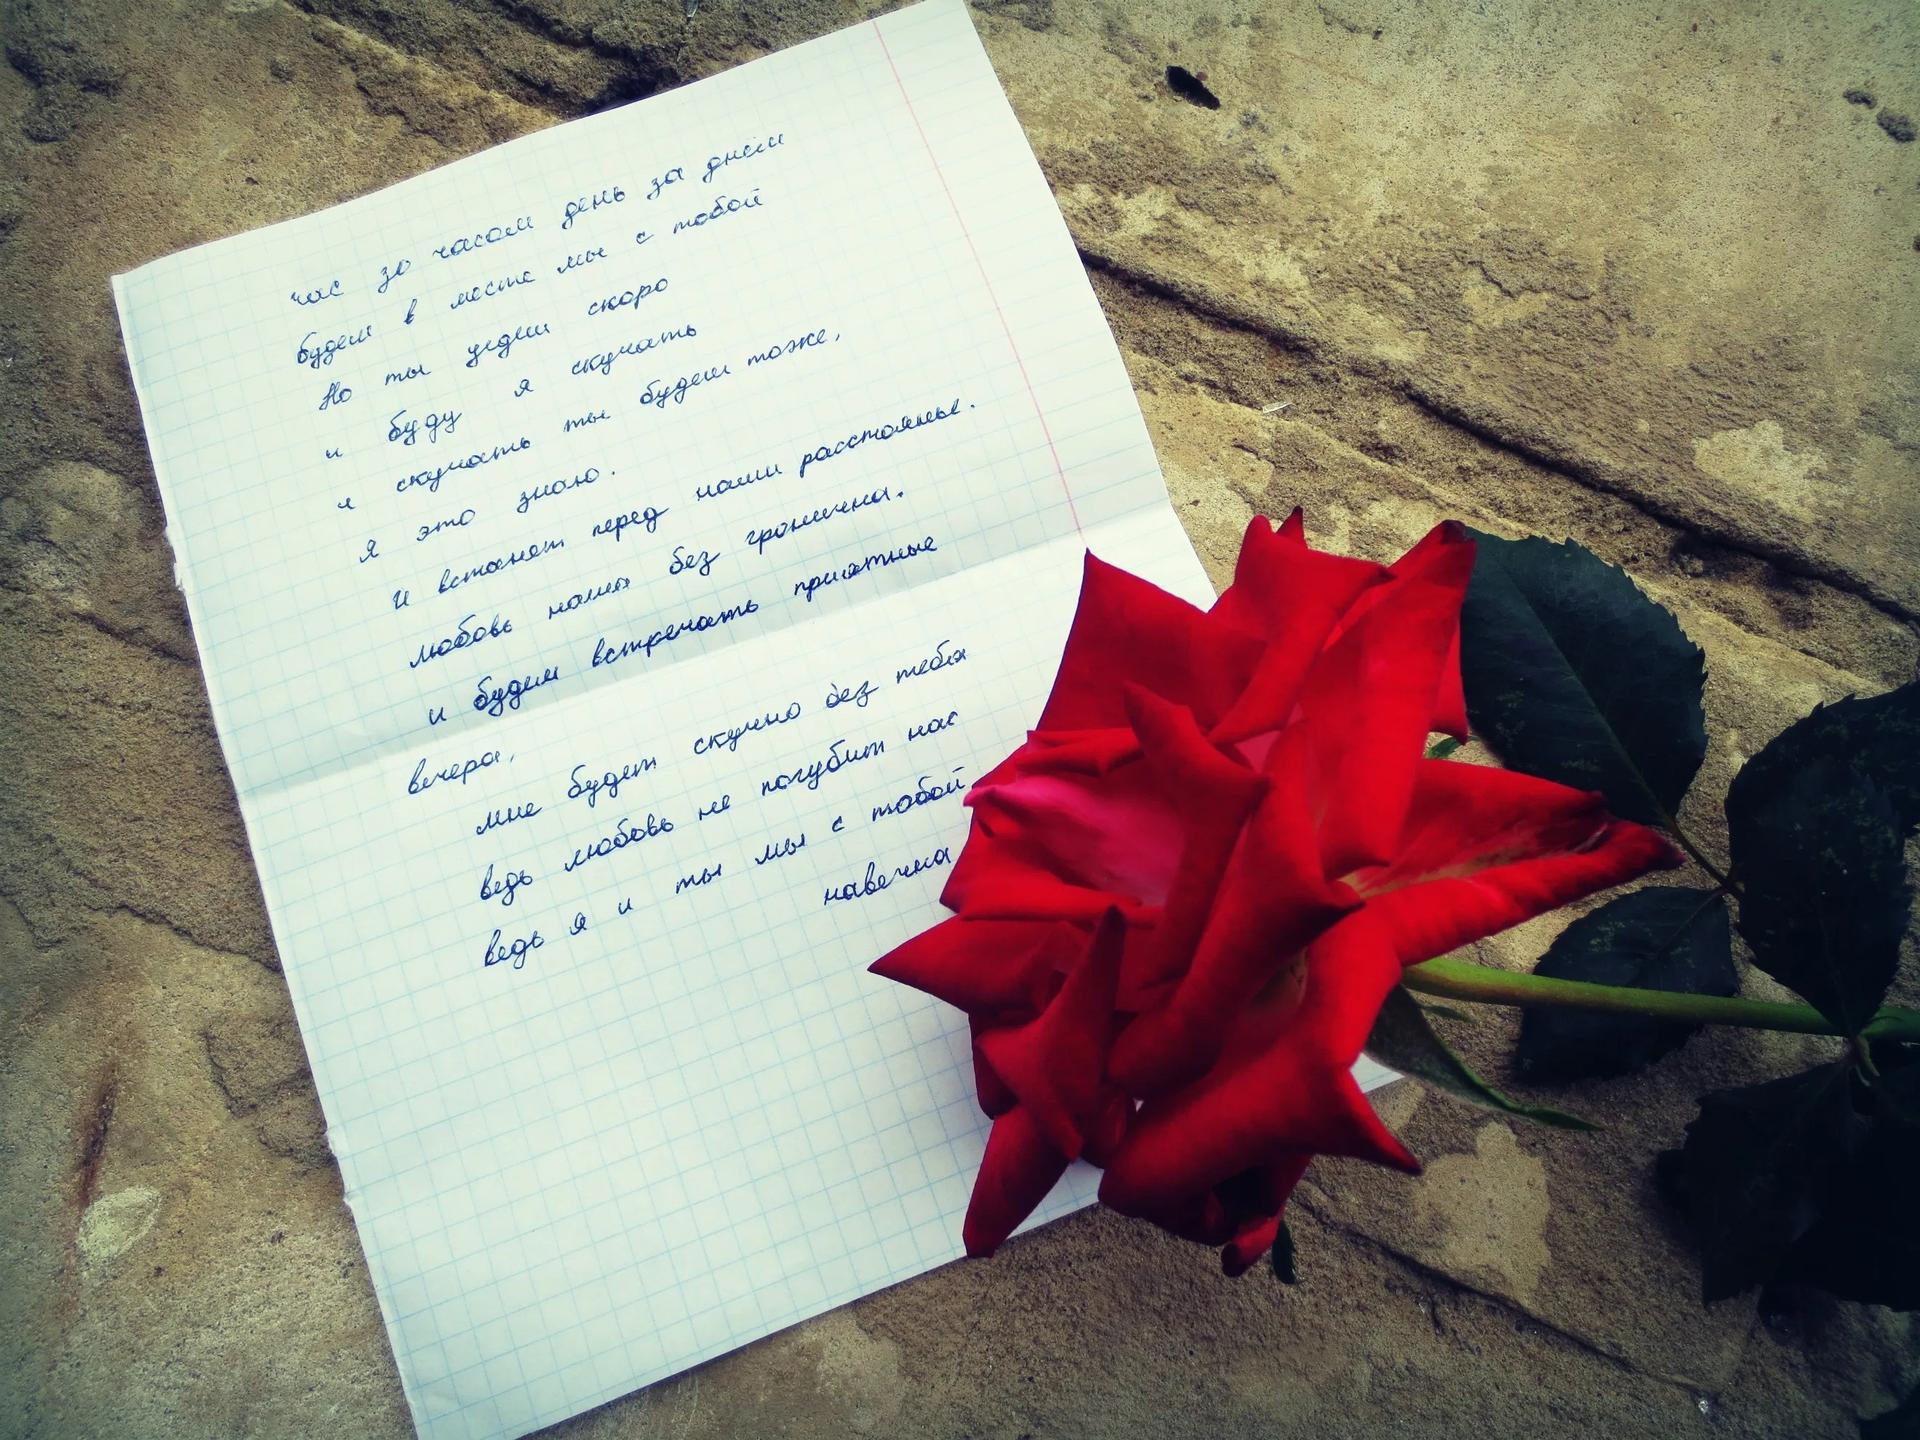 час за часом день за днём
будем в месте мы с тобой
Но ты уедеш скоро
и буду я скучать
и скучать ты будеш тоже,
я это знаю.
И встанет перед нами расстоянье.
любовь наша без гранична.
и будем встречать приятные
вечера,
мне будет скучно без тебя
ведь любовь не погубит нас
ведь я и ты мы с тобой
навечна